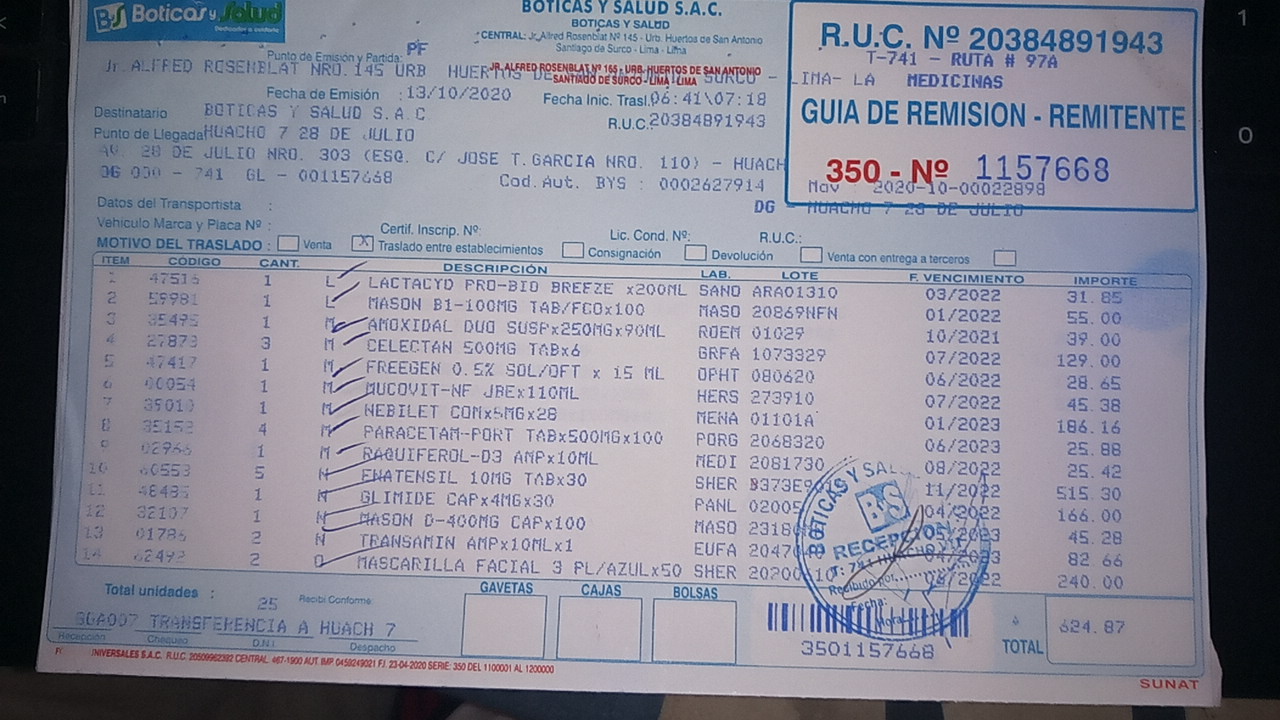 Boticas y Salud
Dedicados a cuidarte
BOTICAS Y SALUD S.A.C.
BOTICAS Y SALUD
CENTRAL: Jr. Alfred Rosenblat Nº 145 - Urb. Huertos de San Antonio
Santiago de Surco - Lima - Lima
Punto de Emisión y Partida: PF
Jr. ALFRED ROSENBLAT NRO. 145 URB HUERTOS DE SURCO - LIMA- LA
JR. ALFRED ROSENBLAT Nº 165 - URB. HUERTOS DE SAN ANTONIO
SANTIAGO DE SURCO - LIMA - LIMA
Fecha de Emisión : 13/10/2020 Fecha Inic. Trasl. 06:41\07:18
Destinatario BOTICAS Y SALUD S.A.C R.U.C.: 20384891943
Punto de Llegada HUACHO 7 28 DE JULIO
AV. 28 DE JULIO NRO. 303 (ESQ. C/ JOSE T.GARCIA NRO. 110) - HUACH
DG 000 - 741 GL - 001157668 Cod.Aut. BYS : 0002627914
R.U.C. Nº 20384891943
T-741 - RUTA # 97A
MEDICINAS
GUIA DE REMISION - REMITENTE
350 - Nº 1157668
Mov 2020-10-00022898
DG - HUACHO 7 28 DE JULIO
Datos del Transportista :
Vehiculo Marca y Placa Nº : Certif. Inscrip. Nº: Lic. Cond. Nº: R.U.C.:
MOTIVO DEL TRASLADO : Venta X Traslado entre establecimientos Consignación Devolución Venta con entrega a terceros
ITEM CÓDIGO CANT. DESCRIPCIÓN LAB. LOTE F. VENCIMIENTO IMPORTE
1 47516 1 L LACTACYD PRO-BIO BREEZE x200ML SANO ARA01310 03/2022 31.85
2 59981 1 L MASON B1-100MG TAB/FCOx100 MASO 20869NFN 01/2022 55.00
3 35495 1 M AMOXIDAL DUO SUSPx250MGx90ML ROEM 01029 10/2021 39.00
4 27873 3 M CELECTAN 500MG TABx6 GRFA 1073329 07/2022 129.00
5 47417 1 M FREEGEN 0.5% SOL/OFT x 15 ML OPHT 080620 06/2022 28.65
6 00054 1 M MUCOVIT-NF JBEx110ML HERS 273910 07/2022 45.38
7 39010 1 M NEBILET COMx5MGx28 MENA 01101A 01/2023 186.16
8 35153 4 M PARACETAM-PORT TABx500MGx100 PORG 2068320 06/2023 25.88
9 02966 1 M RAQUIFEROL-D3 AMPx10ML MEDI 2081730 08/2022 25.42
10 60553 5 N ENATENSIL 10MG TABx30 SHER 11/2022 515.30
11 48485 1 N GLIMIDE CAPx4MGx30 PANL 04/2022 166.00
12 32107 1 N MASON D-400MG CAPx100 MASO 45.28
13 01786 2 N TRANSAMIN AMPx10MLx1 EUFA 82.66
14 62492 2 O MASCARILLA FACIAL 3 PL/AZULx50 SHER 240.00
BOTICAS Y SAL
BS
RECEPCION
Recibido por
Fecha:
Hora
Total unidades : 25 Recibí Conforme GAVETAS CAJAS BOLSAS
GGA007 TRANSFERENCIA A HUACH 7
Recepción Chequeo D.N.I. Despacho
3501157668
TOTAL 624.87
INIVERSALES S.A.C. R.U.C. 20509962392 CENTRAL: 467-1900 AUT. IMP. 0459249021 F.I. 23-04-2020 SERIE: 350 DEL 1100001 AL 1200000
SUNAT